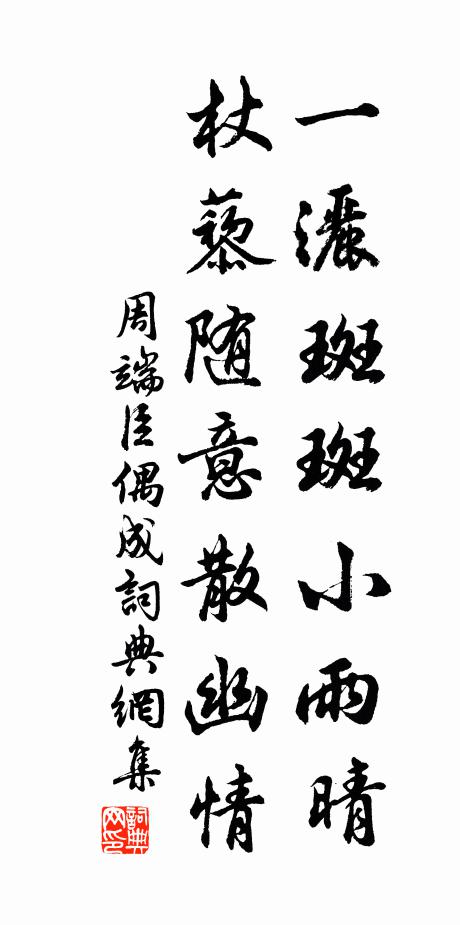 一灑斑斑小雨晴
杖藜随意散幽情
周端臣偶成詞典網集
詞典网印